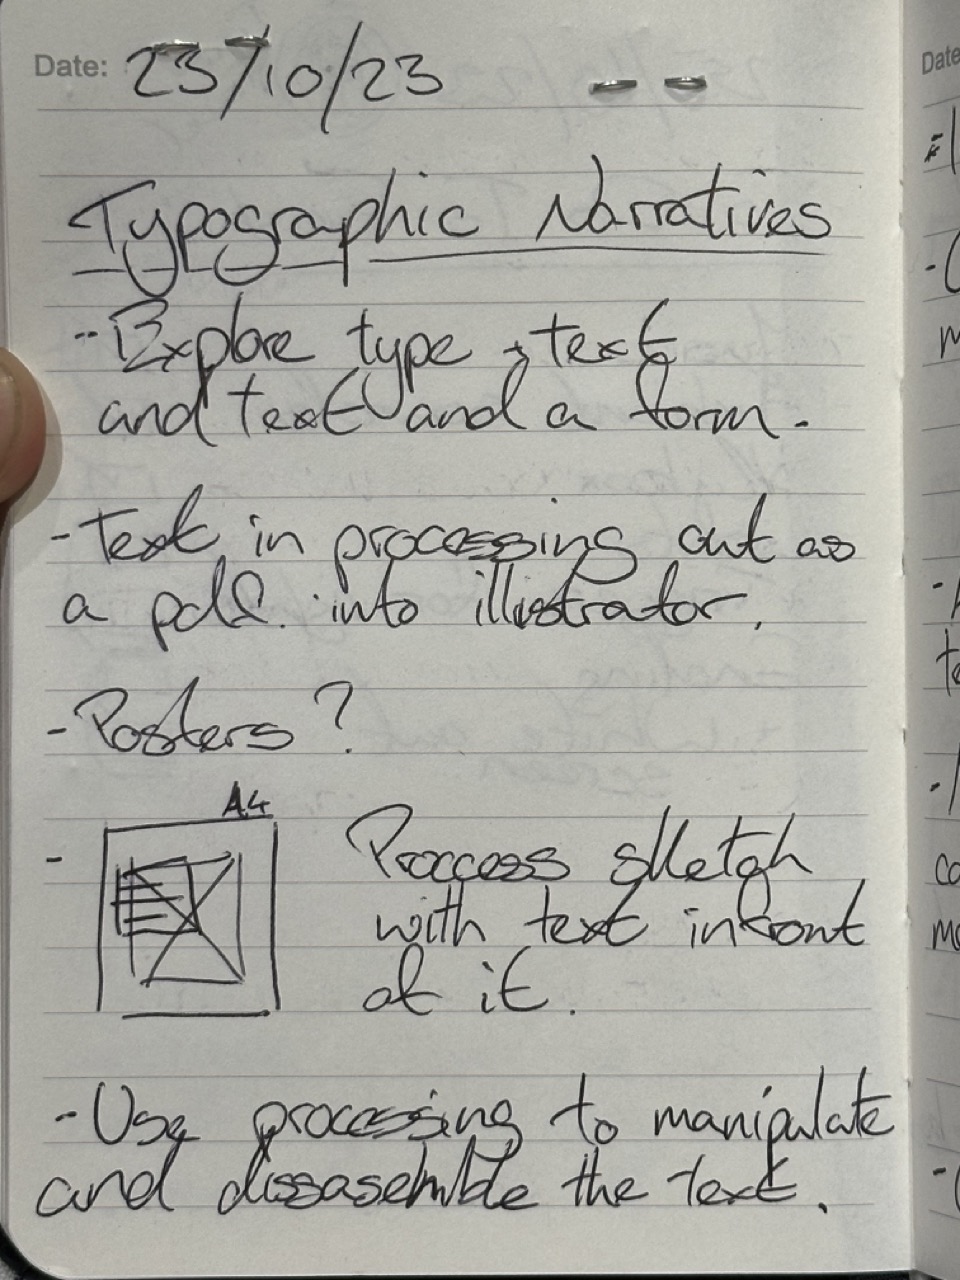 Date: 23/10/23
Typographic Narratives
-Explore type, text
and text and a form.
-Text in processing out as
a pdf. into illustrator.
-Posters?
A4
- Proccess sketch
with text infront
of it.
-Use processing to manipulate
and dissasemble the text.
Date